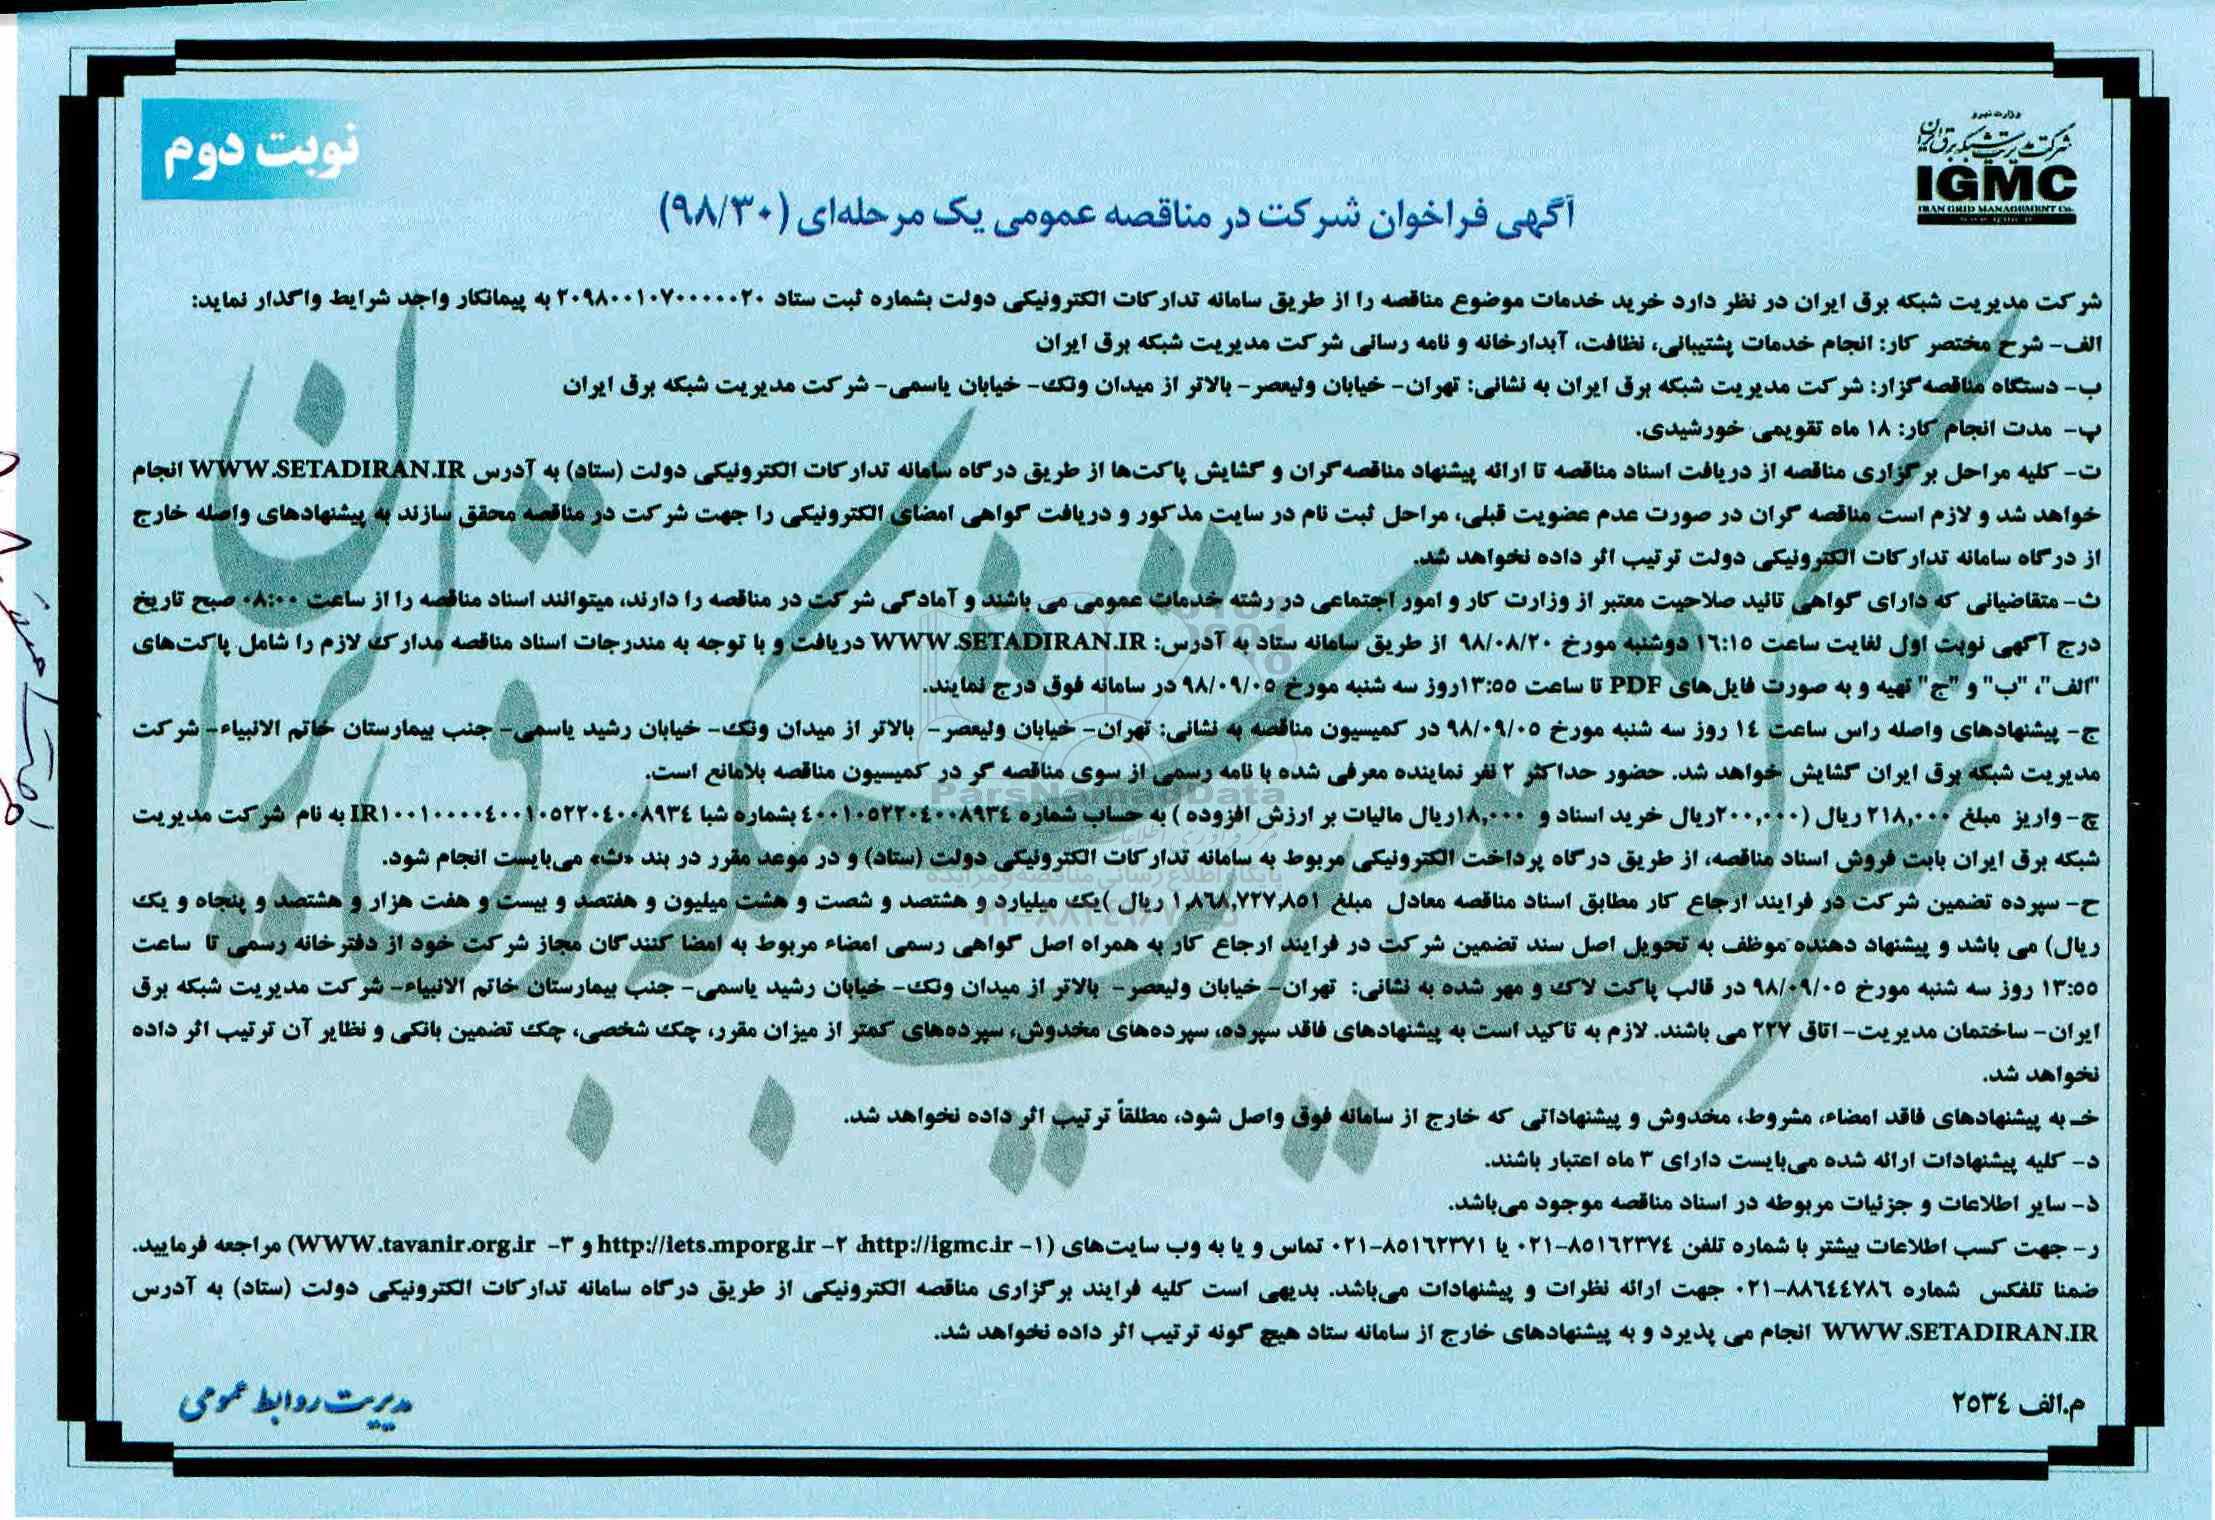 نوبت دوم
وزارت نیرو
شرکت مدیریت شبکه برق ایران
IGMC
IRAN GRID MANAGEMENT Co.
آگهی فراخوان شرکت در مناقصه عمومی یک مرحله‌ای (۹۸/۳۰)
شرکت مدیریت شبکه برق ایران در نظر دارد خرید خدمات موضوع مناقصه را از طریق سامانه تدارکات الکترونیکی دولت بشماره ثبت ستاد ۲۰۹۸۰۰۱۰۷۰۰۰۰۰۲۰ به پیمانکار واجد شرایط واگذار نماید:
الف- شرح مختصر کار: انجام خدمات پشتیبانی، نظافت، آبدارخانه و نامه رسانی شرکت مدیریت شبکه برق ایران
ب- دستگاه مناقصه‌گزار: شرکت مدیریت شبکه برق ایران به نشانی: تهران- خیابان ولیعصر- بالاتر از میدان ونک- خیابان یاسمی- شرکت مدیریت شبکه برق ایران
پ- مدت انجام کار: ۱۸ ماه تقویمی خورشیدی.
ت- کلیه مراحل برگزاری مناقصه از دریافت اسناد مناقصه تا ارائه پیشنهاد مناقصه‌گران و گشایش پاکت‌ها از طریق درگاه سامانه تدارکات الکترونیکی دولت (ستاد) به آدرس WWW.SETADIRAN.IR انجام
خواهد شد و لازم است مناقصه گران در صورت عدم عضویت قبلی، مراحل ثبت نام در سایت مذکور و دریافت گواهی امضای الکترونیکی را جهت شرکت در مناقصه محقق سازند به پیشنهادهای واصله خارج
از درگاه سامانه تدارکات الکترونیکی دولت ترتیب اثر داده نخواهد شد.
ث- متقاضیانی که دارای گواهی تائید صلاحیت معتبر از وزارت کار و امور اجتماعی در رشته خدمات عمومی می باشند و آمادگی شرکت در مناقصه را دارند، میتوانند اسناد مناقصه را از ساعت ۰۸:۰۰ صبح تاریخ
درج آگهی نوبت اول لغایت ساعت ۱۶:۱۵ دوشنبه مورخ ۹۸/۰۸/۲۰ از طریق سامانه ستاد به آدرس: WWW.SETADIRAN.IR دریافت و با توجه به مندرجات اسناد مناقصه مدارک لازم را شامل پاکت‌های
"الف"، "ب" و "ج" تهیه و به صورت فایل‌های PDF تا ساعت ۱۳:۵۵روز سه شنبه مورخ ۹۸/۰۹/۰۵ در سامانه فوق درج نمایند.
ج- پیشنهادهای واصله راس ساعت ۱۴ روز سه شنبه مورخ ۹۸/۰۹/۰۵ در کمیسیون مناقصه به نشانی: تهران- خیابان ولیعصر- بالاتر از میدان ونک- خیابان رشید یاسمی- جنب بیمارستان خاتم الانبیاء- شرکت
مدیریت شبکه برق ایران گشایش خواهد شد. حضور حداکثر ۲ نفر نماینده معرفی شده با نامه رسمی از سوی مناقصه گر در کمیسیون مناقصه بلامانع است.
چ- واریز مبلغ ۲۱۸,۰۰۰ ریال (۲۰۰,۰۰۰ریال خرید اسناد و ۱۸,۰۰۰ریال مالیات بر ارزش افزوده ) به حساب شماره ۴۰۰۱۰۵۲۲۰۴۰۰۸۹۳۴ بشماره شبا IR۱۰۰۱۰۰۰۰۴۰۰۱۰۵۲۲۰۴۰۰۸۹۳۴ به نام شرکت مدیریت
شبکه برق ایران بابت فروش اسناد مناقصه، از طریق درگاه پرداخت الکترونیکی مربوط به سامانه تدارکات الکترونیکی دولت (ستاد) و در موعد مقرر در بند «ث» می‌بایست انجام شود.
ح- سپرده تضمین شرکت در فرایند ارجاع کار مطابق اسناد مناقصه معادل مبلغ ۱,۸۶۸,۷۲۷,۸۵۱ ریال )یک میلیارد و هشتصد و شصت و هشت میلیون و هفتصد و بیست و هفت هزار و هشتصد و پنجاه و یک
ریال) می باشد و پیشنهاد دهنده موظف به تحویل اصل سند تضمین شرکت در فرایند ارجاع کار به همراه اصل گواهی رسمی امضاء مربوط به امضا کنندگان مجاز شرکت خود از دفترخانه رسمی تا ساعت
۱۳:۵۵ روز سه شنبه مورخ ۹۸/۰۹/۰۵ در قالب پاکت لاک و مهر شده به نشانی: تهران- خیابان ولیعصر- بالاتر از میدان ونک- خیابان رشید یاسمی- جنب بیمارستان خاتم الانبیاء- شرکت مدیریت شبکه برق
ایران- ساختمان مدیریت- اتاق ۲۲۷ می باشند. لازم به تاکید است به پیشنهادهای فاقد سپرده، سپرده‌های مخدوش، سپرده‌های کمتر از میزان مقرر، چک شخصی، چک تضمین بانکی و نظایر آن ترتیب اثر داده
نخواهد شد.
خـ به پیشنهادهای فاقد امضاء، مشروط، مخدوش و پیشنهاداتی که خارج از سامانه فوق واصل شود، مطلقاً ترتیب اثر داده نخواهد شد.
د- کلیه پیشنهادات ارائه شده می‌بایست دارای ۳ ماه اعتبار باشند.
ذ- سایر اطلاعات و جزئیات مربوطه در اسناد مناقصه موجود می‌باشد.
ر- جهت کسب اطلاعات بیشتر با شماره تلفن ۸۵۱۶۲۳۷۴-۰۲۱ یا ۸۵۱۶۲۳۷۱-۰۲۱ تماس و یا به وب سایت‌های (۱- http://igmc.ir، ۲- http://iets.mporg.ir و ۳- WWW.tavanir.org.ir) مراجعه فرمایید.
ضمنا تلفکس شماره ۸۸۶۴۴۷۸۶-۰۲۱ جهت ارائه نظرات و پیشنهادات می‌باشد. بدیهی است کلیه فرایند برگزاری مناقصه الکترونیکی از طریق درگاه سامانه تدارکات الکترونیکی دولت (ستاد) به آدرس
WWW.SETADIRAN.IR انجام می پذیرد و به پیشنهادهای خارج از سامانه ستاد هیچ گونه ترتیب اثر داده نخواهد شد.
م.الف ۲۵۳۴
مدیریت روابط عمومی
ParsNamadData
پایگاه اطلاع رسانی مناقصه و مزایده